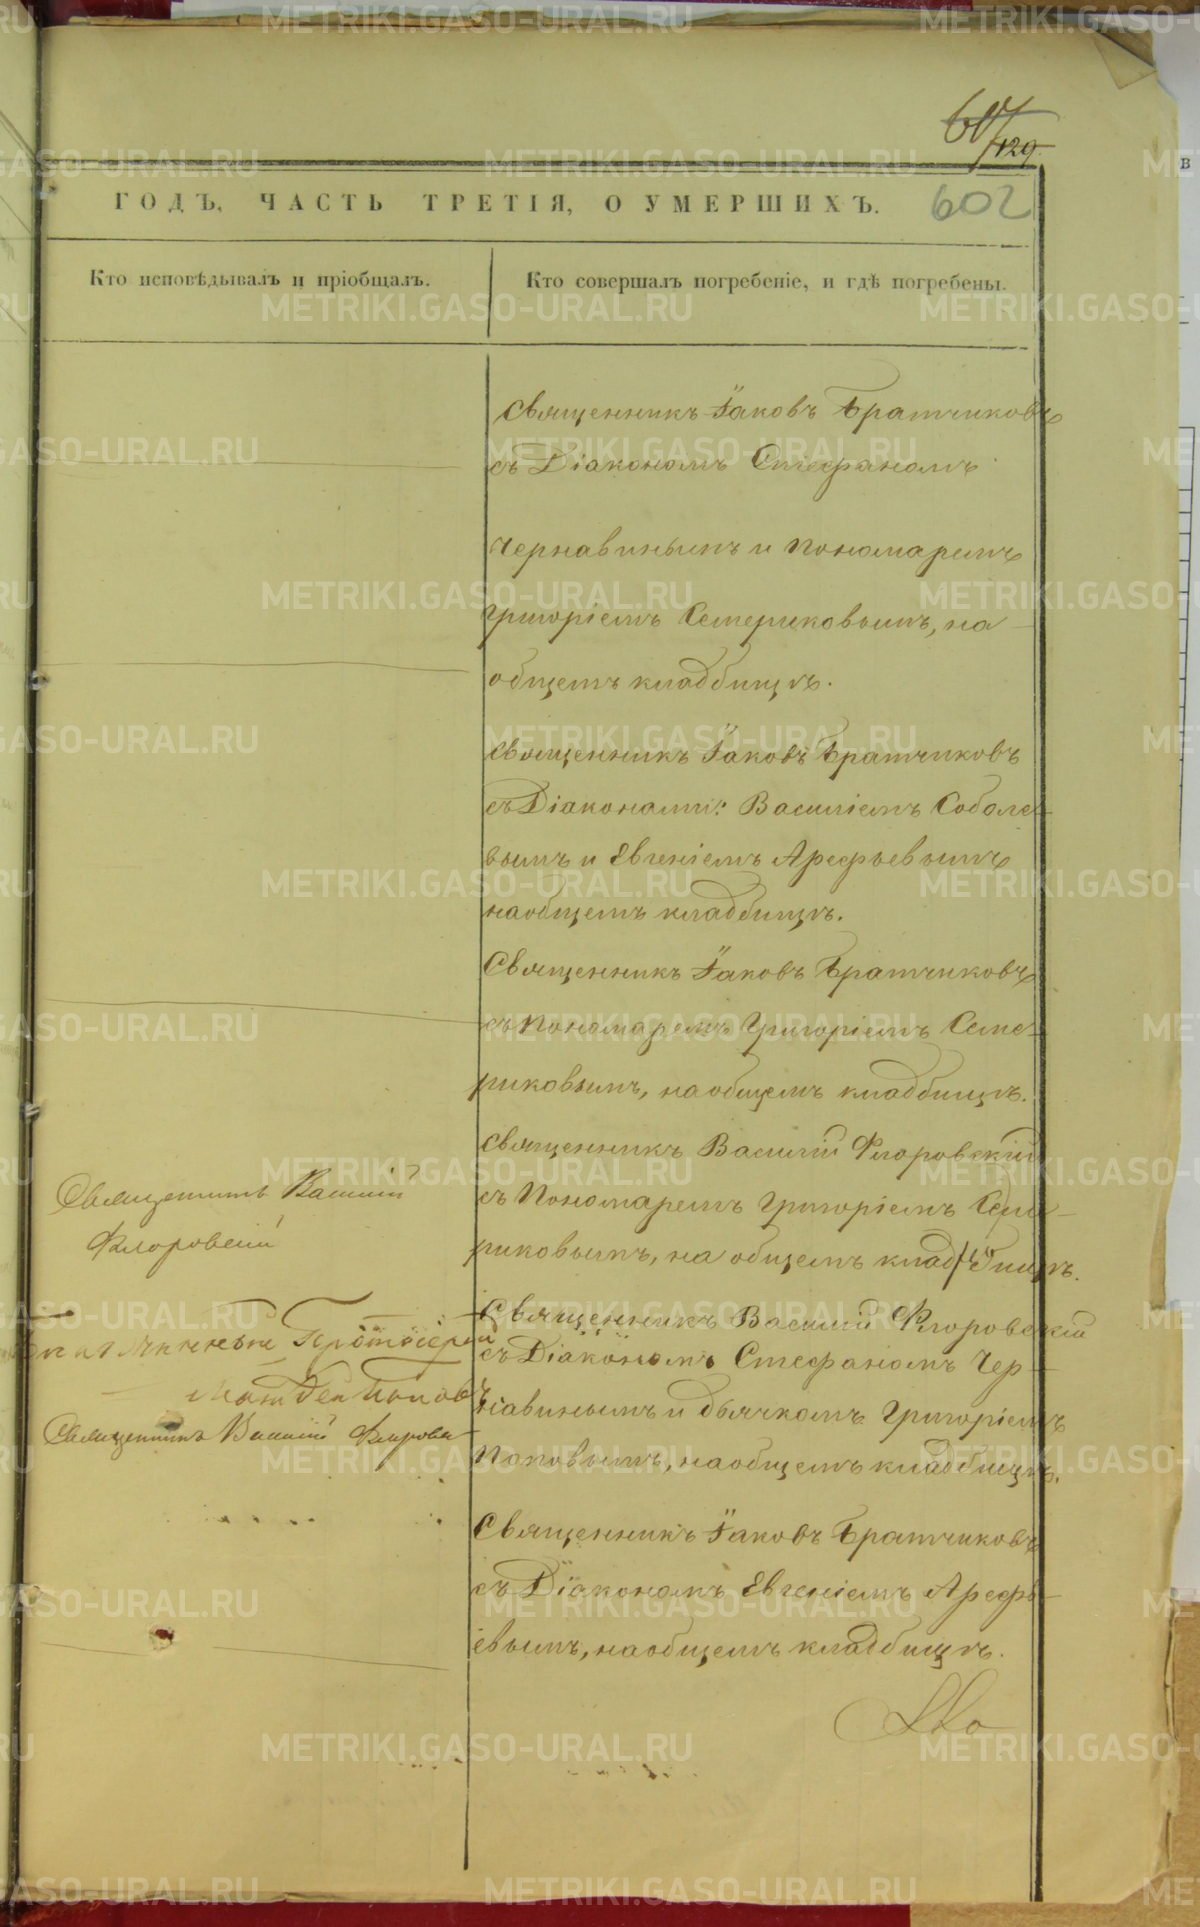 607
129.
602
ГОДЪ, ЧАСТЬ ТРЕТІЯ, О УМЕРШИХЪ.
Кто исповѣдывалъ и пріобщалъ.
Кто совершалъ погребеніе, и гдѣ погребены.
Священникъ Іаковъ Братчиковъ
съ Діакономъ Стефаномъ
Чернавинымъ и Пономаремъ
Григоріемъ Семериковымъ, на
общемъ кладбищѣ.
Священникъ Іаковъ Братчиковъ
съ Діаконами: Василіемъ Соболе-
вымъ и Евгеніемъ Арефьевымъ
на общемъ кладбищѣ.
Священникъ Іаковъ Братчиковъ
съ Пономаремъ Григоріемъ Семе-
риковымъ, на общемъ кладбищѣ.
Священникъ Василій Флоровскій
съ Пономаремъ Григоріемъ Семе-
риковымъ, на общемъ кладбищѣ.
Священникъ Василій
Флоровскій
Священникъ Василій Флоровскій
съ Діакономъ Стефаномъ Чер-
навинымъ и дьячкомъ Григоріемъ
Поповымъ, на общемъ кладбищѣ.
Протоіерей
Поповъ
Священникъ Василій Флоровск
Священникъ Іаковъ Братчиковъ
съ Діакономъ Евгеніемъ Арефь-
евымъ, на общемъ кладбищѣ.
METRIKI.GASO-URAL.RU